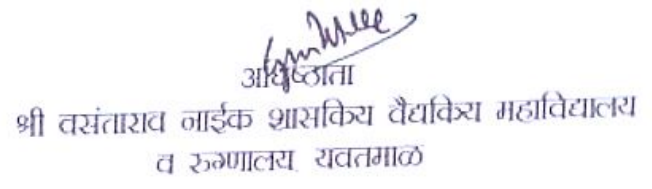 अधिष्ठाता
श्री वसंताराव नाईक शासकिय वैद्यकिय महाविद्यालय
व रुग्णालय यवतमाळ